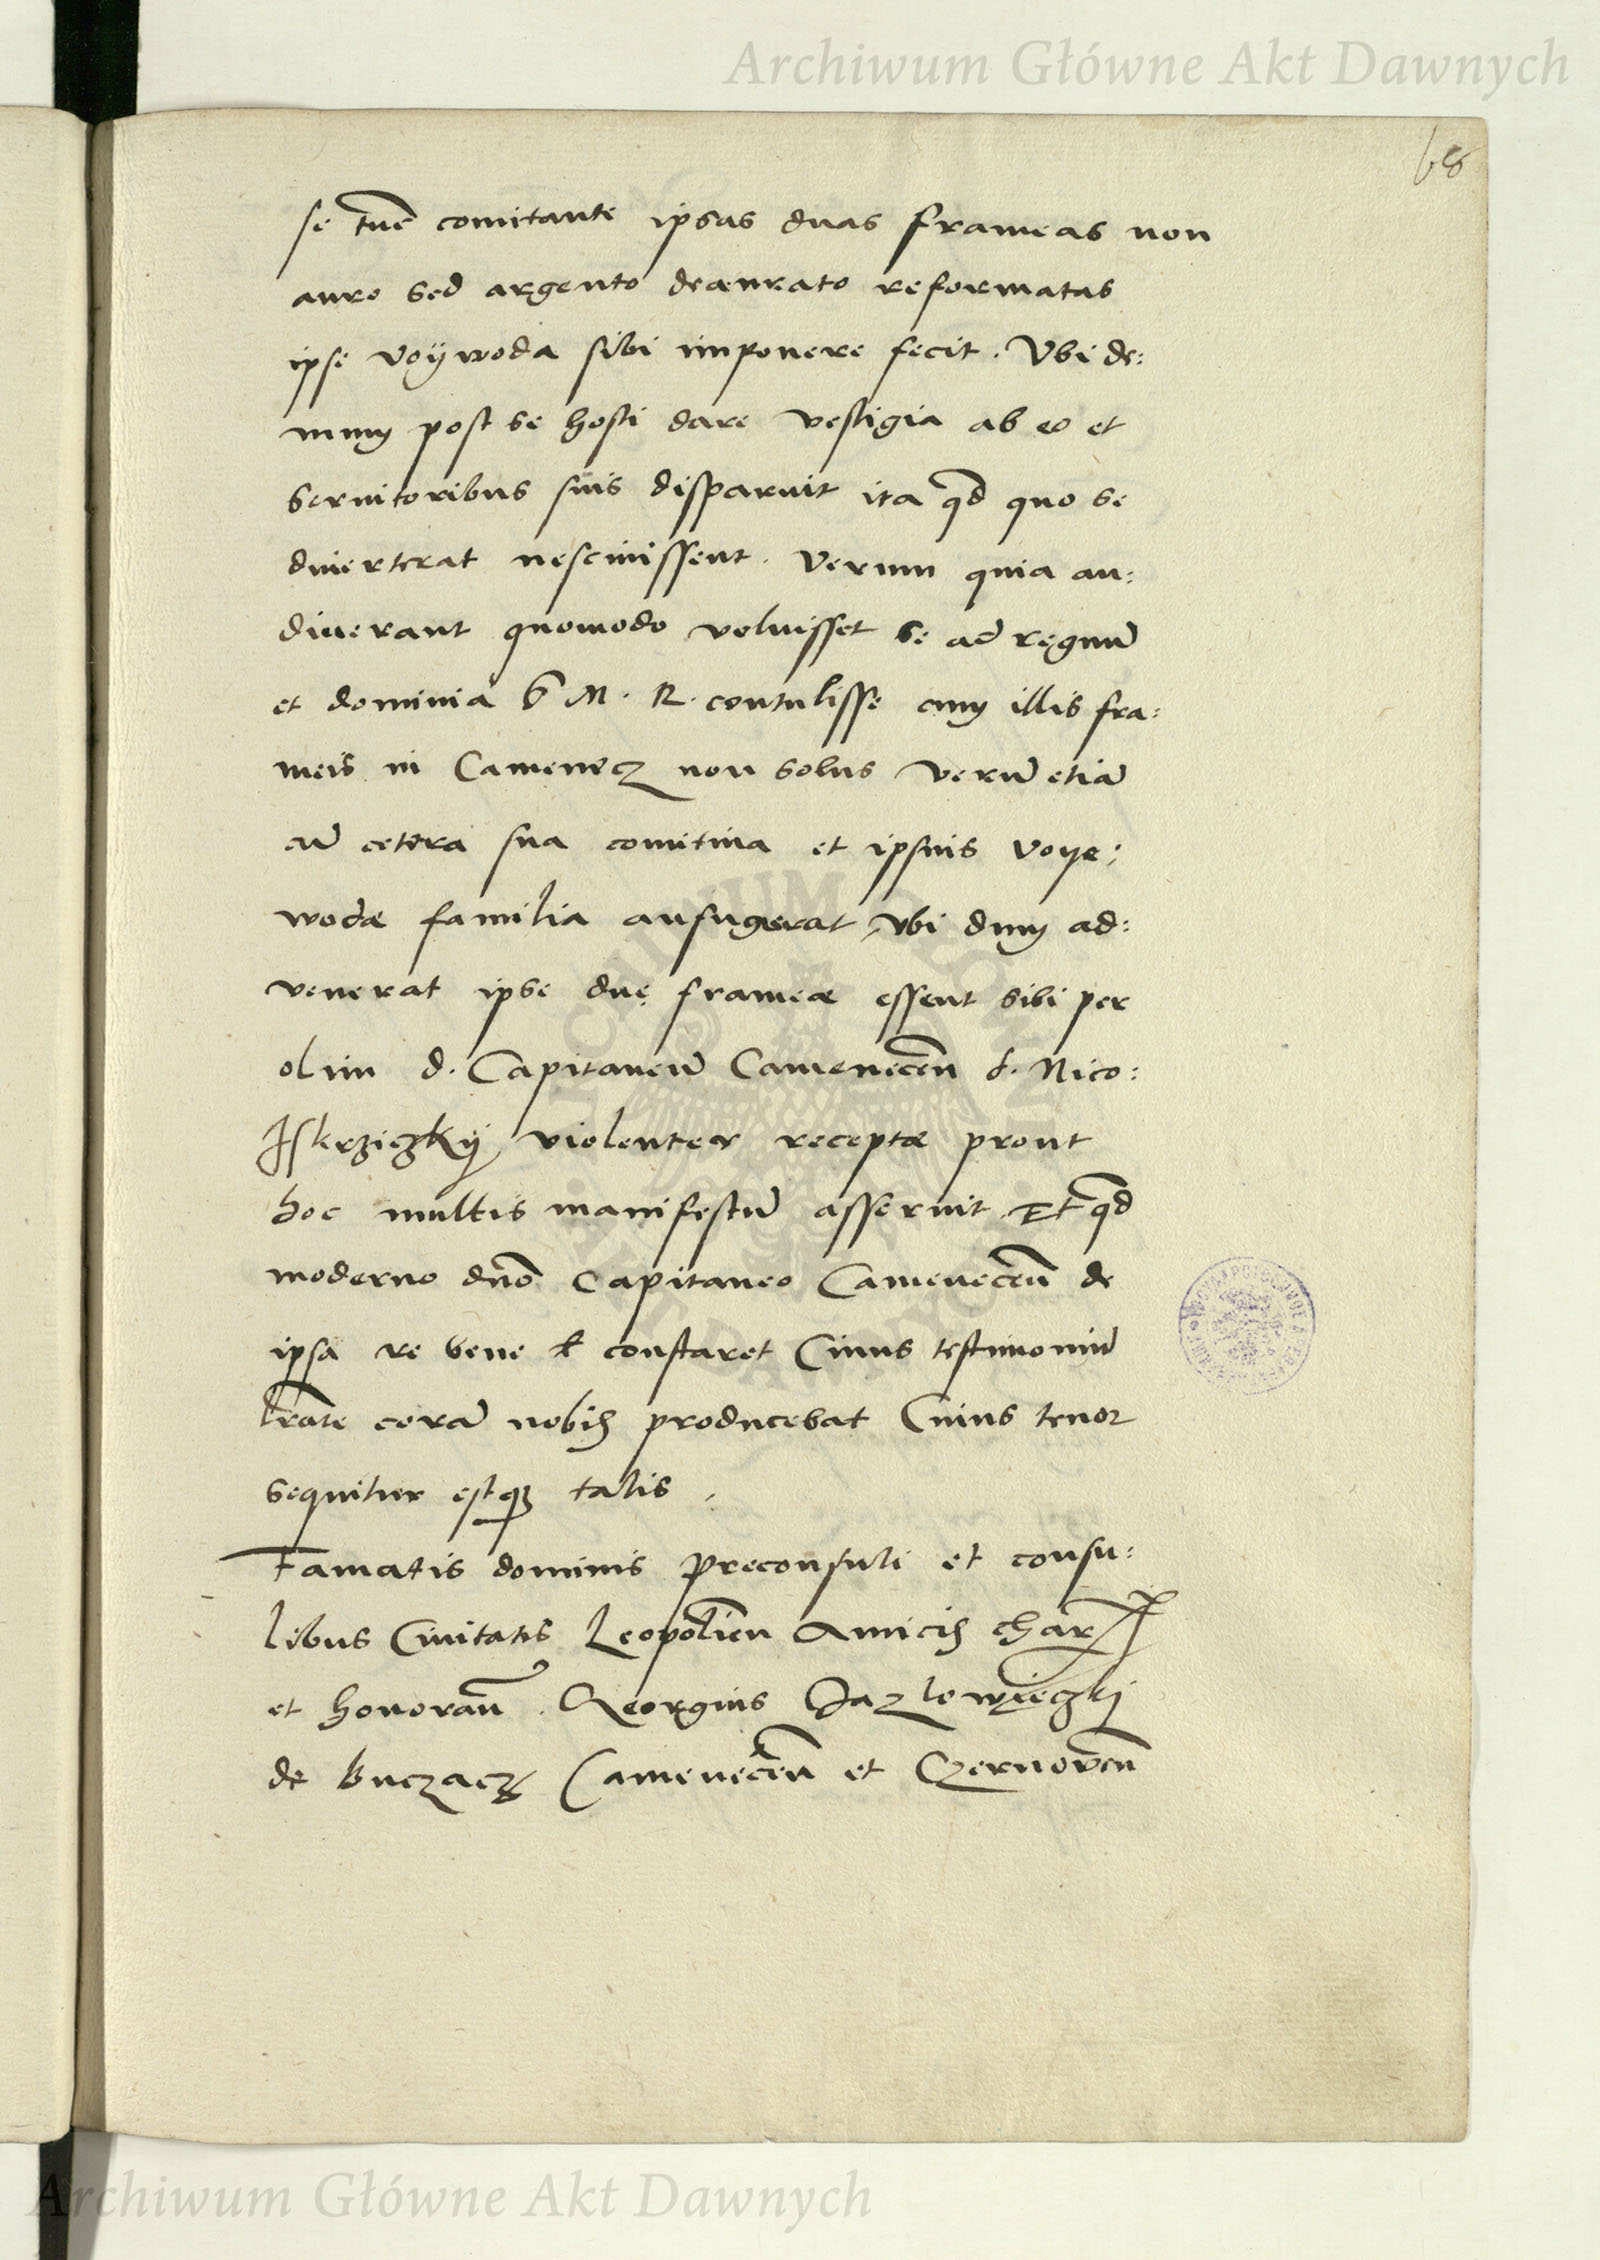 Archiwum Główne Akt Dawnych
68
se tūc comitante ipsas duas frameas non
auro sed argento deaurato reformatas
ipse voÿwoda sibi imponere fecit. Vbi de:
mum post se hosti dare vestigia ab eo et
seruitoribus suis disparuit ita qd quo se
diuerterat nesciuissent. Verum quia au:
diuerant quomodo voluisset se ad regnū
et dominia S M. R. contulisse cum illis fra:
meis in Camenecz non solus verū etiā
cū cetera sua comitiua et ipsius voye:
wodæ familia aufugerat, vbi dum ad:
venerat ipse duę frameæ essent sibi per
olim d. Capitaneū Camenecēn d. Nico:
Iskrziczkÿ violenter receptæ prout
hoc multis manifestū asseruit. Et qd
moderno dnō Capitaneo Camenecēn de
ipsa re bene constaret Cuius testimoniū
lrāte corā nobis producebat Cuius tenor
sequitur estq; talis.
Famatis dominis Preconsuli et consu:
libus Ciuitatis Leopoliēn Amicis char
et honorān. Georgius Jazlowieczkj
de Buczacz Camenecēn et Czernovēn
Archiwum Główne Akt Dawnych